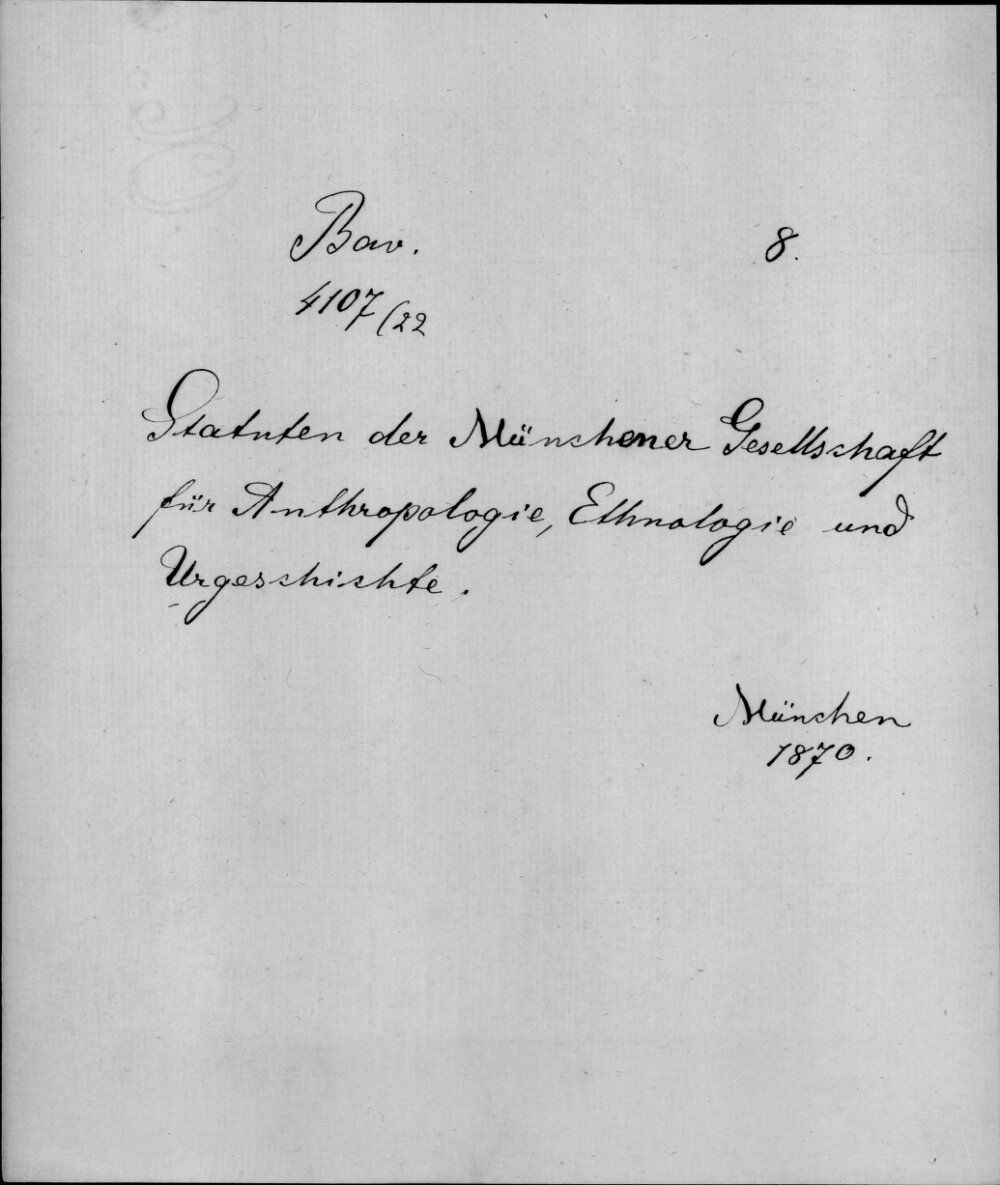 Bav. 8.
4107/22
Statuten der Münchener Gesellschaft
für Anthropologie, Ethnologie und
Urgeschichte.
München
1870.